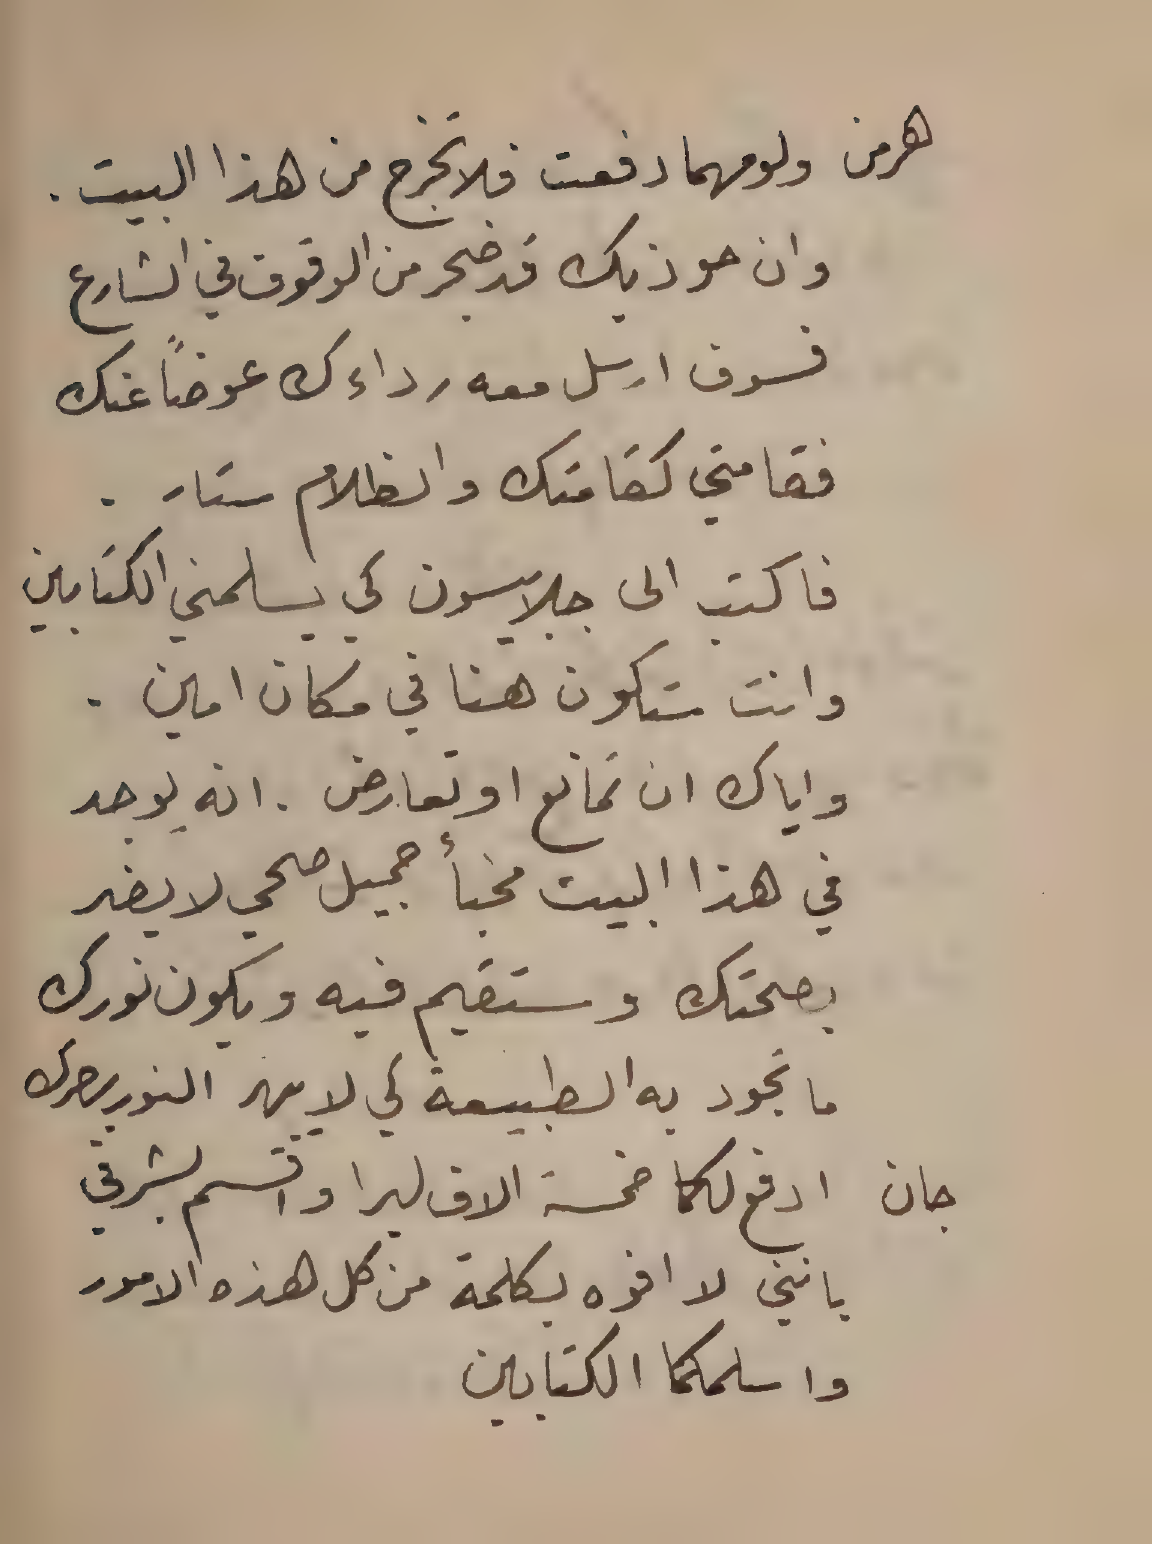 هرمن ولومهما دفعت فلا تخرج من هذا البيت .
وان حوذيك قد ضجر من الوقوف في الشارع
فسوف ارسل معه رداءك عوضاً عنك
فقامتي كقامتك والظلام ستار .
فاكتب الى جلايسون كي يسلمني الكتابين
وانت ستكون هنا في مكان امين .
واياك ان تمانع او تعارض . انه يوجد
في هذا البيت مخبأ جميل صحي لا يضر
بصحتك وستقيم فيه ويكون نورك
ما تجود به الطبيعة كي لا يبهر النور بصرك
جان ادفع لكما خمسة الاف ليرا واقسم بشرفي
بانني لا افوه بكلمة من كل هذه الامور
واسلمكما الكتابين